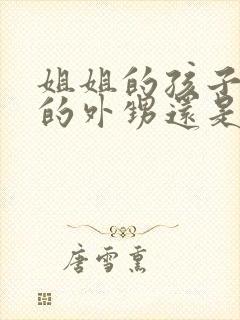 姐姐的孩子
的外甥還是
唐雪熏